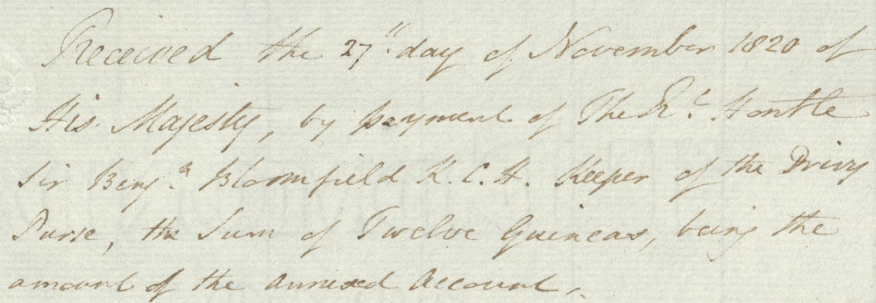 Received the 27th day of November 1820 of
His Majesty, by payment of The Rt. Honble
Sir Benjn. Bloomfield K.C.H. Keeper of the Privy
Purse, the Sum of Twelve Guineas, being the
amount of the annexed Account.